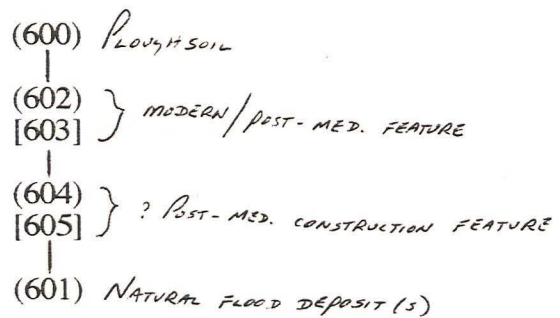 (600) PLOUGHSOIL
(602)
[603] } MODERN/POST-MED. FEATURE
(604)
[605] } ? POST-MED. CONSTRUCTION FEATURE
(601) NATURAL FLOOD DEPOSIT(S)